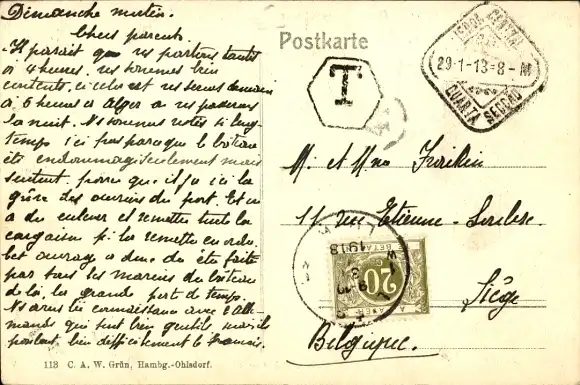 Dimanche matin.
Chers parents.
Il parait que ns partons tantôt
à 4 heures, ns sommes bien
contents, si cela est ns serons demain
à 6 heures à Alger a ns passerons
la nuit. Ns sommes restés si long-
temps ici pas parce que le bateau
été endommagé seulement mais
surtout parce que il y a ici la
grève des ouvriers du port. Et on
a du enlever et remettre toute la
cargaison pr la remettre en ordre.
Cet ouvrage a donc du été faite
par tous les marins du bâteau
de là, la grande perte de temps.
Ns avons fait connaissance avec 2 Alle-
mands qui sont bien gentils mais ils
parlent bien difficilement le français.
118 C. A. W. Grün, Hambg.-Ohlsdorf.
Postkarte
T
CENTRAL
29-1-13-8-M
QUARTA SECCÃO
M. et Mme
11, rue Etienne-Soubre.
Liége
Belgique.
1913
20
A BETALEN